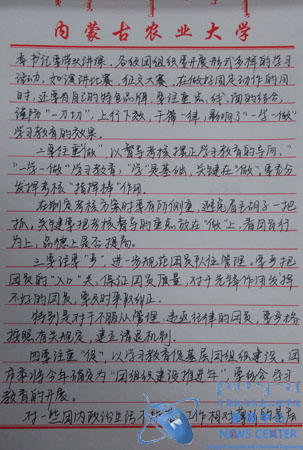 内蒙古农业大学
委书记要带头讲课，各级团组织要开展形式多样的学习
活动，如演讲比赛，征文大赛，在做好固定动作的同
时，还要有自己的特色品牌，要注重点、线、面的结合，
谨防“一刀切”，上行下效，千篇一律，影响了“一学一做”
学习教育的效果。
二要注重“做”，以督导考核握正学习教育的导向，
“一学一做”学习教育，“学”是基础，关键在“做”，要充分
发挥考核“指挥棒”作用。
在制定考核方案时要有所侧重，避免眉毛胡子一把
抓，关键要把考核督导的重点放在“做”上，看团员行
为上，品德上是否提高。
三要注重“严”，进一步规范团员队伍管理，要严把
团员的“入口”关，保证团员质量，对于先锋作用发挥
不好的团员，要及时要求纠正。
特别是对于不服从管理，违返纪律的团员，要严格
按照有关规定，建立诸退机制。
四要注重“促”，以学习教育促基层团组织建设，团
市委将今年确定为“团组织建设推进年”，要结合学习
教育的开展。
对一些团内政治生活不 工作相对 的基层
NEWS CENTER